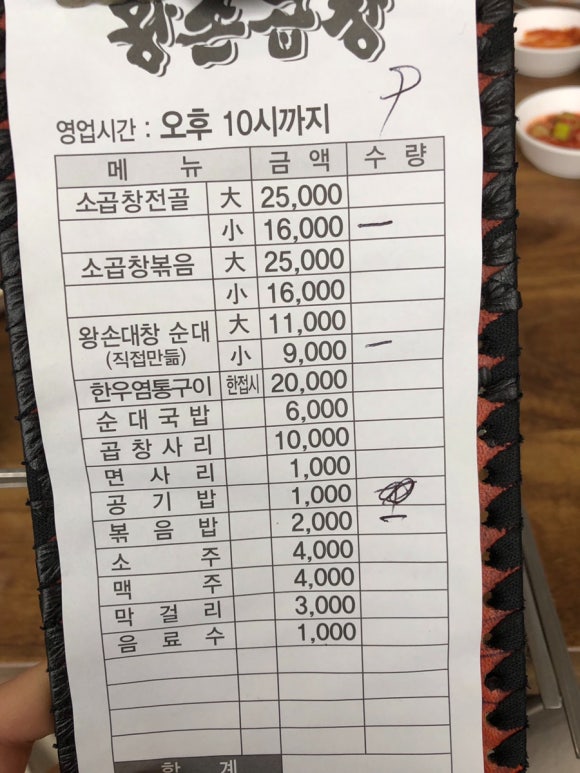 영업시간 : 오후 10시까지
메 뉴 금 액 수 량
소곱창전골 大 25,000
小 16,000 一
소곱창볶음 大 25,000
小 16,000
왕손대창 순대 大 11,000
(직접만듦) 小 9,000 一
한우염통구이 한접시 20,000
순 대 국 밥 6,000
곱 창 사 리 10,000
면 사 리 1,000
공 기 밥 1,000
볶 음 밥 2,000 一
소 주 4,000
맥 주 4,000
막 걸 리 3,000
음 료 수 1,000
합 계